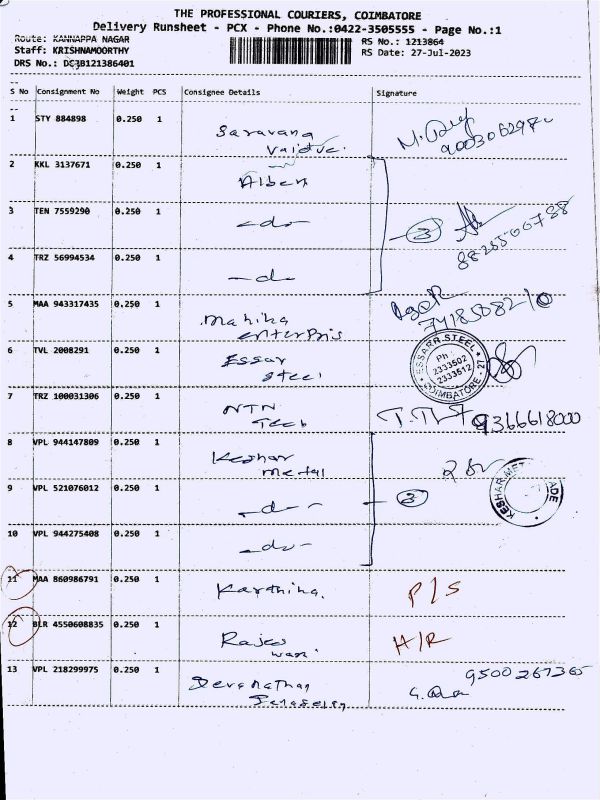 THE PROFESSIONAL COURIERS, COIMBATORE
Delivery Runsheet - PCX - Phone No.:0422-3505555 - Page No.:1
Route: KANNAPPA NAGAR
RS No.: 1213864
Staff: KRISHNAMOORTHY
RS Date: 27-Jul-2023
DRS No.: DC3B121386401
S No Consignment No Weight PCS Consignee Details Signature
1 STY 884898 0.250 1 Saravana
2 KKL 3137671 0.250 1 Albert
3 TEN 7559290 0.250 1 -do-
3
4 TRZ 56994534 0.250 1 -do-
5 MAA 943317435 0.250 1 Mahika
enterpris
6 TVL 2008291 0.250 1 Essar
Steel
ESSARR STEEL
Ph :
2333502
2333512
COIMBATORE - 27
7 TRZ 100031306 0.250 1 NTN
Tech 9366618000
8 VPL 944147809 0.250 1 Keshar
metal
9 VPL 521076012 0.250 1 -do-
3
10 VPL 944275408 0.250 1 -do-
11 MAA 860986791 0.250 1 Karthika. P/S
12 BLR 4550608835 0.250 1 H/R
13 VPL 218299975 0.250 1 Devanathan 9500267365